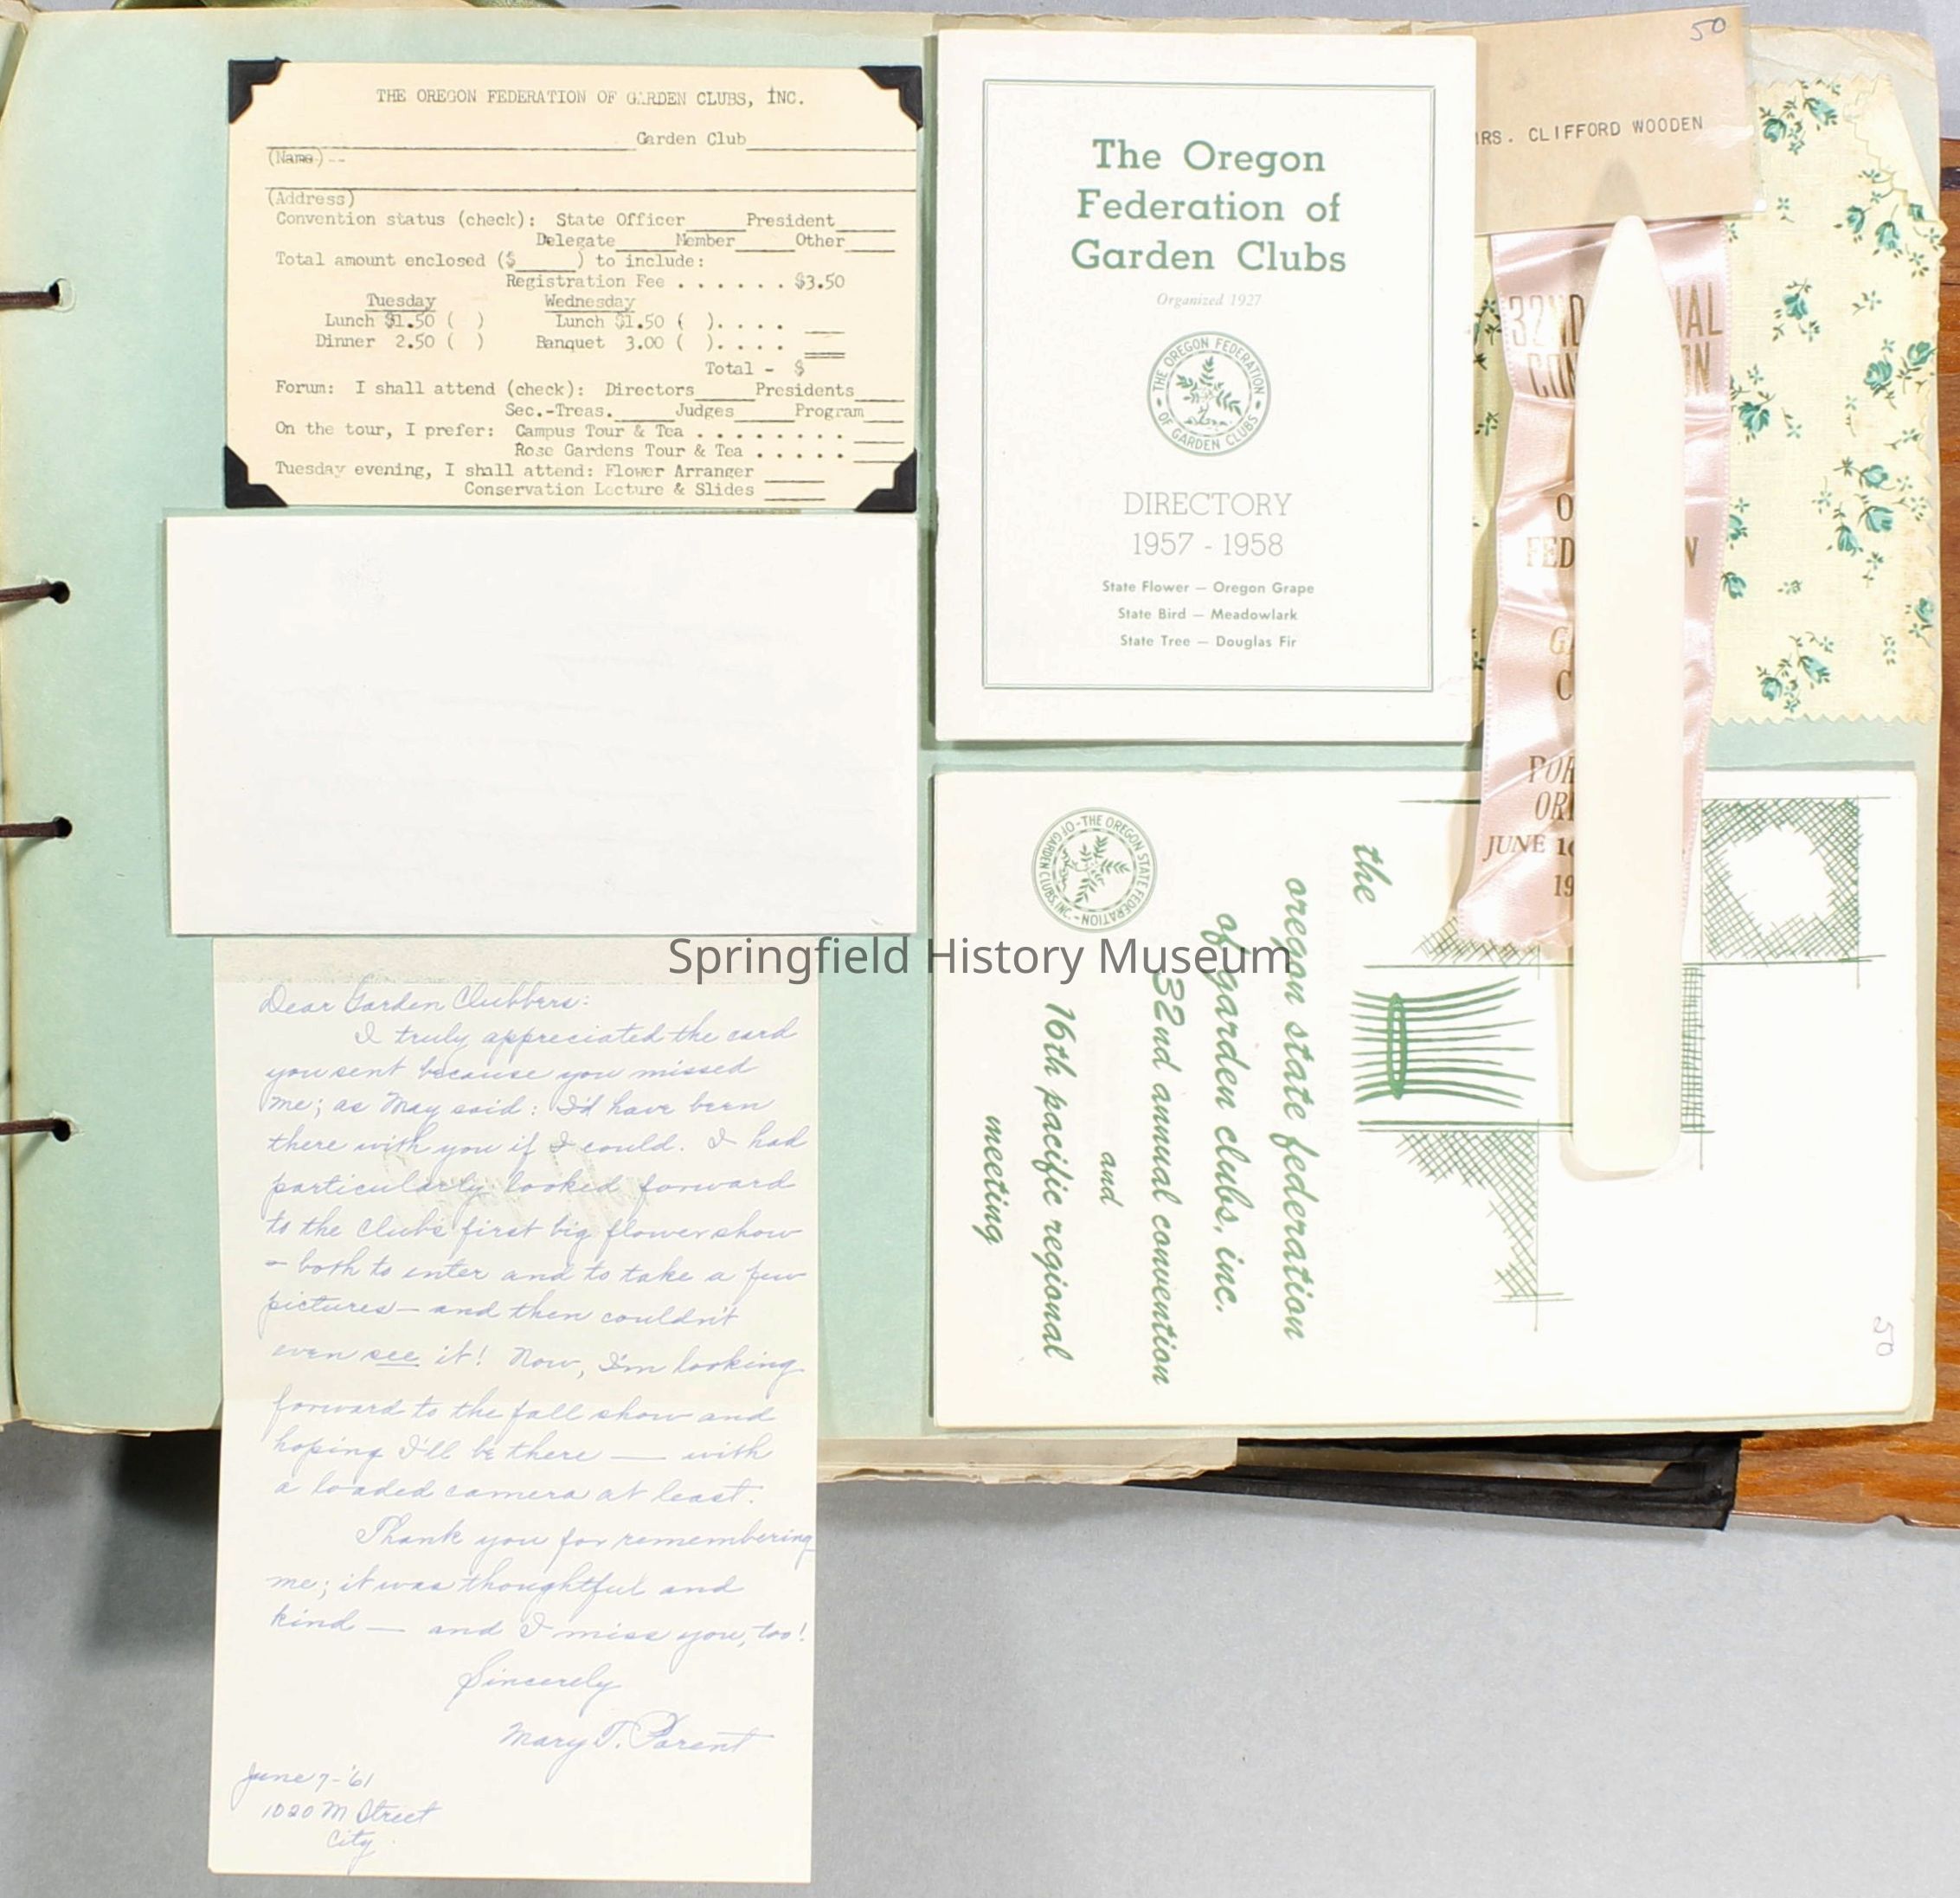 THE OREGON FEDERATION OF GARDEN CLUBS, INC.
Garden Club
(Name)
(Address)
Convention status (check): State Officer President
Delegate Member Other
Total amount enclosed ($ ) to include:
Registration Fee . . . . . . $3.50
Tuesday Wednesday
Lunch $1.50 ( ) Lunch $1.50 ( ). . . .
Dinner 2.50 ( ) Banquet 3.00 ( ). . . .
Total - $
Forum: I shall attend (check): Directors Presidents
Sec.-Treas. Judges Program
On the tour, I prefer: Campus Tour & Tea . . . . . . . .
Rose Gardens Tour & Tea . . . . .
Tuesday evening, I shall attend: Flower Arranger
Conservation Lecture & Slides
The Oregon
Federation of
Garden Clubs
Organized 1927
THE OREGON FEDERATION OF GARDEN CLUBS
DIRECTORY
1957 - 1958
State Flower — Oregon Grape
State Bird — Meadowlark
State Tree — Douglas Fir
50
MRS. CLIFFORD WOODEN
32ND
JUNE
THE OREGON STATE FEDERATION OF GARDEN CLUBS, INC.
the
oregon state federation
of garden clubs, inc.
32nd annual convention
and
16th pacific regional
meeting
50
Springfield History Museum
Dear Garden Clubbers:
I truly appreciated the card
you sent because you missed
me; as May said: I'd have been
there with you if I could. I had
particularly looked forward
to the Club's first big flower show
– both to enter and to take a few
pictures — and then couldn't
even see it! Now, I'm looking
forward to the fall show and
hoping I'll be there — with
a loaded camera at least.
Thank you for remembering
me; it was thoughtful and
kind — and I miss you, too!
Sincerely
Mary T. Parent
June 7-'61
1020 M Street
City.